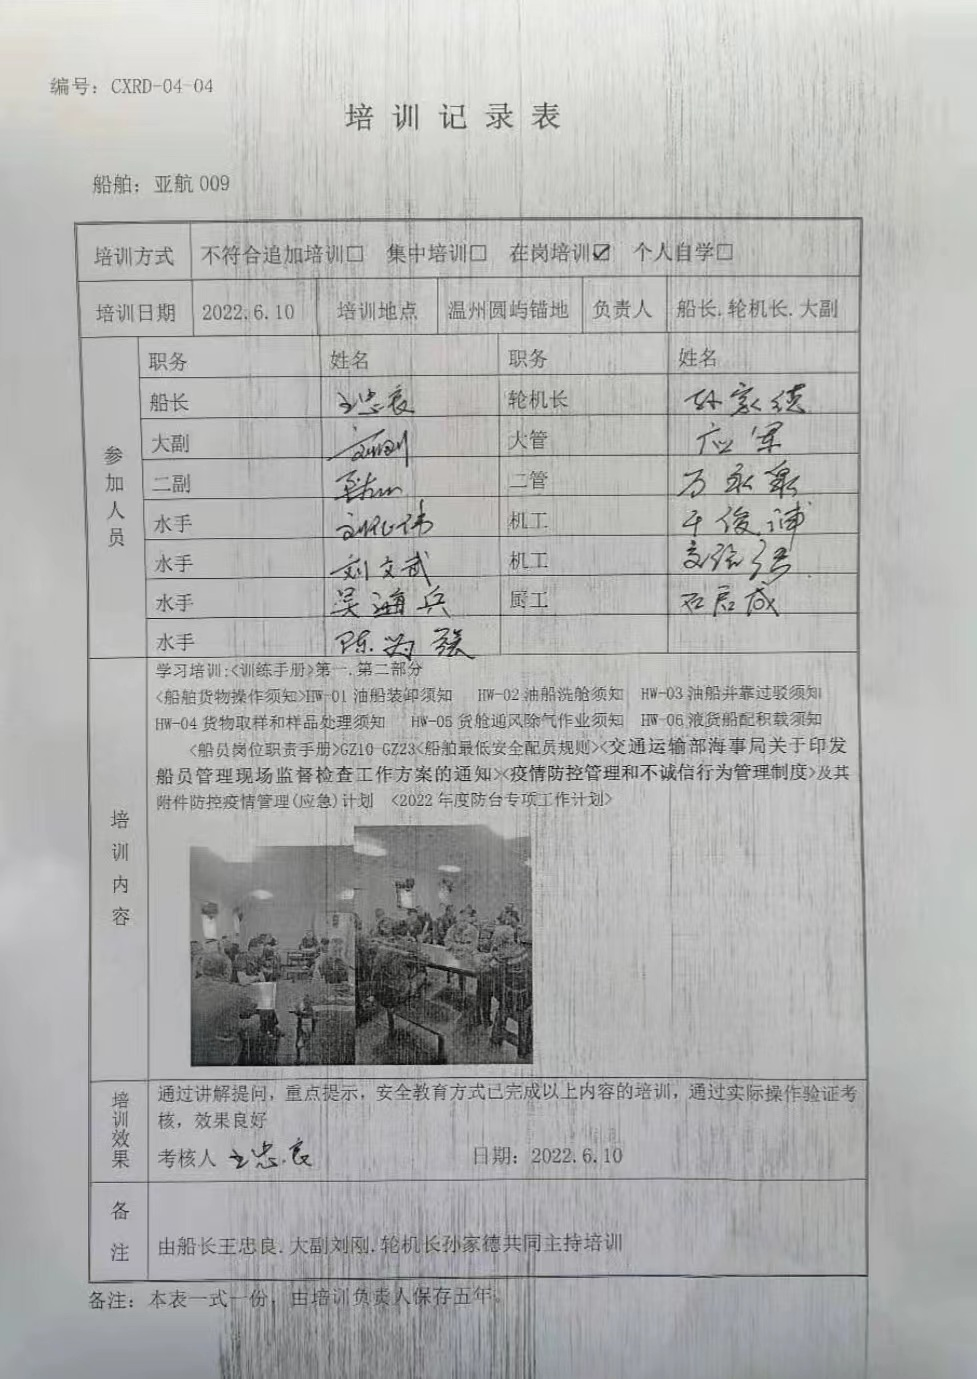 编号：CXRD-04-04
培训记录表
船舶：亚航 009
培训方式 不符合追加培训□ 集中培训□ 在岗培训☑ 个人自学□
培训日期 2022.6.10 培训地点 温州圆屿锚地 负责人 船长.轮机长.大副
参加人员
职务 姓名 职务 姓名
船长 王忠良 轮机长 孙家德
大副 刘刚 大管 应军
二副 二管
水手 机工
水手 刘文武 机工
水手 吴海兵 厨工
水手 陈为强
培训内容
学习培训:<训练手册>第一.第二部分
<船舶货物操作须知>HW-01 油船装卸须知 HW-02 油船洗舱须知 HW-03 油船并靠过驳须知
HW-04 货物取样和样品处理须知 HW-05 货舱通风除气作业须知 HW-06 液货船配积载须知
<船员岗位职责手册>GZ10-GZ23<船舶最低安全配员规则><交通运输部海事局关于印发
船员管理现场监督检查工作方案的通知><疫情防控管理和不诚信行为管理制度>及其
附件防控疫情管理(应急)计划 <2022 年度防台专项工作计划>
培训效果
通过讲解提问，重点提示，安全教育方式已完成以上内容的培训，通过实际操作验证考
核，效果良好
考核人 王忠良 日期：2022.6.10
备注
由船长王忠良.大副刘刚.轮机长孙家德共同主持培训
备注：本表一式一份，由培训负责人保存五年。